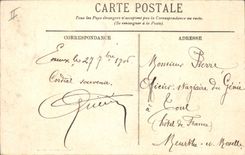 CARTE POSTALE
Tous les Pays étrangers n'acceptent pas la Correspondance au recto.
(Se renseigner à la Poste)
CORRESPONDANCE
ADRESSE
le 27 7bre 1906
Cordial souvenir
Monsieur Pierre
Officier stagiaire du Génie
à Toul
(hôtel de France)
Meurthe-et-Moselle